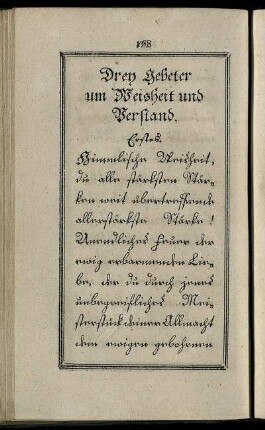 168
Drey Gebeter
um Weisheit und
Verstand.
Erstes.
Himmlische Weisheit,
du alle stärksten Stär-
ken weit übertreffende
allerstärkste Stärke!
Unendliches Feuer der
ewig erbarmenden Lie-
be, der du durch jenes
unbegreifliches Mei-
sterstück deiner Allmacht
dem ewigen gebohrnen